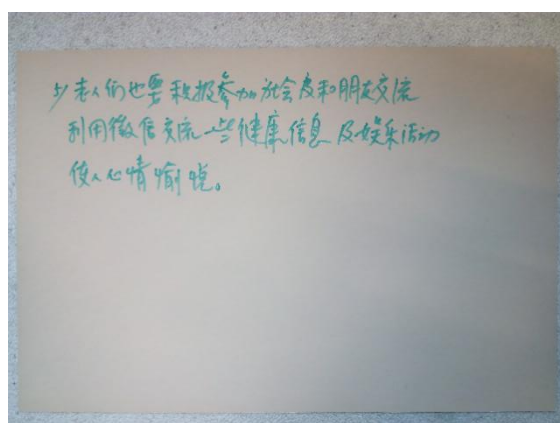 5/老人们也要积极参加社会及和朋友交流
利用微信交流一些健康信息及娱乐活动
使人心情愉悦。